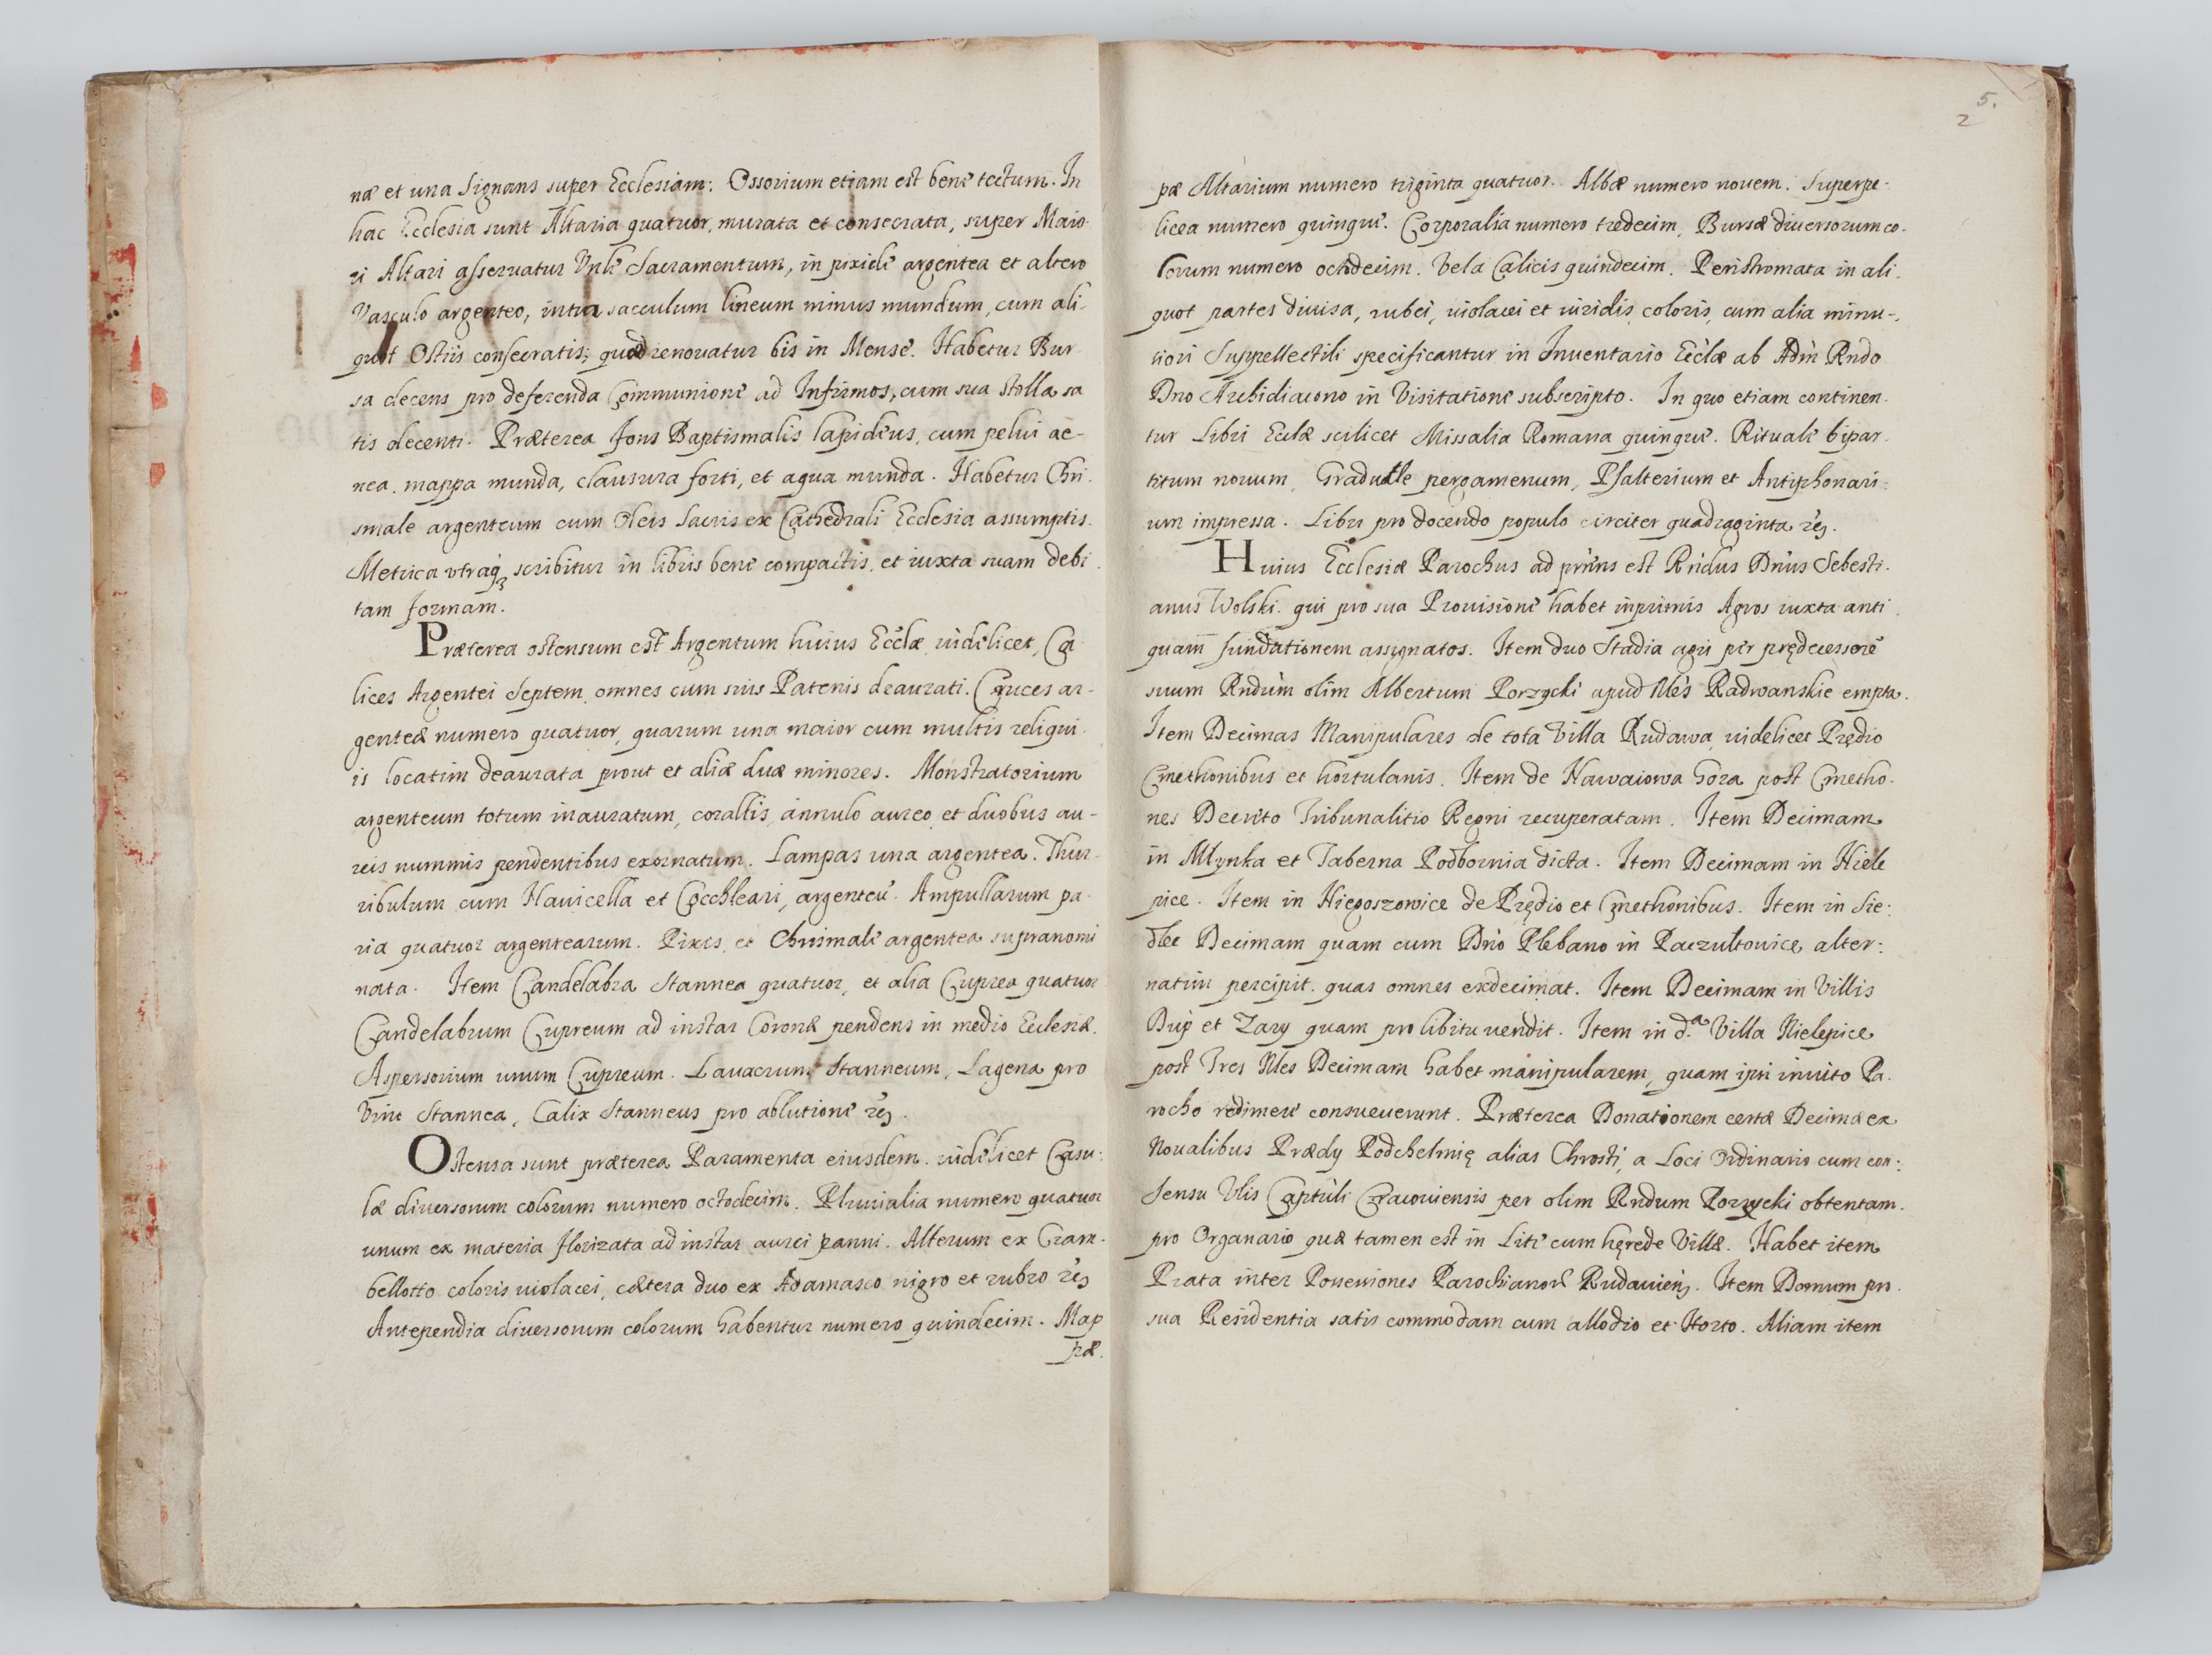 næ et una Signans super Ecclesiam. Ossorium etiam est benè tectum. In
hac Ecclesia sunt Altaria quatuor, murata et consecrata, super Maio-
ri Altari asseruatur Vnle Sacramentum, in pixide argentea et altero
Vasculo argenteo, intra sacculum lineum minus mundum, cum ali-
quot Ostiis consecratis; quod renouatur bis in Mense. Habetur Bur
sa decens pro deferenda Communione ad Infirmos, cum sua stolla sa
tis decenti. Præterea fons Baptismalis lapideus, cum pelui ae-
nea, mappa munda, clausura forti, et aqua munda. Habetur Chri-
smale argenteum cum Oleis Sacris ex Cathedrali Ecclesia assumptis.
Metrica vtraq3 scribitur in libris benè compactis, et iuxta suam debi
tam formam.
Præterea ostensum est Argentum huius Ecclæ, videlicet, Ca
lices Argentei Septem, omnes cum suis Patenis deaurati. Cruces ar-
genteæ numero quatuor, quarum una maior cum multis reliqui
is locatim deaurata prout et aliæ duæ minores. Monstratorium
argenteum totum inauratum, corallis, annulo aureo et duobus au-
reis nummis pendentibus exornatum. Lampas una argentea. Thur
ribulum cum Nauicella et Cocchleari, argenteū. Ampullarum pa
ria quatuor argentearum. Pixis, et Chrismale argentea supranomi
nata. Item Candelabra Stannea quatuor, et alia Cuprea quatuor
Candelabrum Cupreum ad instar Coronæ pendens in medio Ecclesiæ.
Aspersorium unum Cupreum. Lauacrum Stanneum, Lagena pro
Vino Stannea, Calix Stanneus pro ablutione etc.
Ostensa sunt præterea Paramenta eiusdem, videlicet Casu:
læ diuersorum colorum numero octodecim. Pluuialia numero quatuor
unum ex materia florizata ad instar aurei panni. Alterum ex Czam-
bellotto coloris violacei, cætera duo ex Adamasco nigro et rubro etc
Antependia diuersorum colorum habentur numero quindecim. Map
pæ.
5.
2
pæ Altarium numero triginta quatuor. Albæ numero nouem. Superpe-
licea numero quinque. Corporalia numero tredecim, Bursæ diuersorum co-
lorum numero octodecim. Vela Calicis quindecim. Peristromata in ali-
quot partes diuisa, rubei, violacei et viridis coloris, cum alia minu-
tiori Suppellectili specificantur in Inuentario Ecclæ ab Adm Rndo
Dno Archidiacono in Visitatione subscripto. In quo etiam continen-
tur Libri Ecclæ scilicet Missalia Romana quinque. Rituale bipar-
titum nouum, Graduale pergamenum, Psalterium et Antiphonari-
um impressa. Libri pro docendo populo circiter quadraginta etc.
Huius Ecclesiæ Parochus ad prñs est Rñdus Dñus Sebesti-
anus Wolski. qui pro sua Prouisione habet inprimis Agros iuxta anti
quam fundationem assignatos. Item duo Stadia agri per prędecessorē
suum Rndum olim Albertum Porzycki apud Nłes Radwanskie empta.
Item Decimas Manipulares de tota Villa Rudawa, videlicet Prędio
Cmethonibus et hortulanis. Item de Nawaiowa Gora post Cmetho-
nes Decreto Tribunalitio Regni recuperatam. Item Decimam
in Młynka et Taberna Podbornia dicta. Item Decimam in Niele
pice. Item in Niegoszowice de Prędio et Cmethonibus. Item in Sie:
dlec Decimam quam cum Dño Plebano in Paczultowice alter:
natim percipit, quas omnes exdecimat. Item Decimam in Villis
Dup et Zary quam pro libitu vendit. Item in d.a Villa Nielepice
post Tres Nłes Decimam habet manipularem, quam ipsi inuito Pa-
rocho redimere consueuerunt. Præterea Donationem certæ Decimæ ex
Noualibus Prædy Podchelmię alias Chrosti, a Loci Ordinario cum con:
sensu Vlis Capituli Cracouiensis per olim Rndum Porzycki obtentam.
pro Organario quæ tamen est in Lite cum hęrede Villæ. Habet item
Prata inter Possessiones Parochianorū Rudauien̄. Item Domum pro
sua Residentia satis commodam cum allodio et Horto. Aliam item